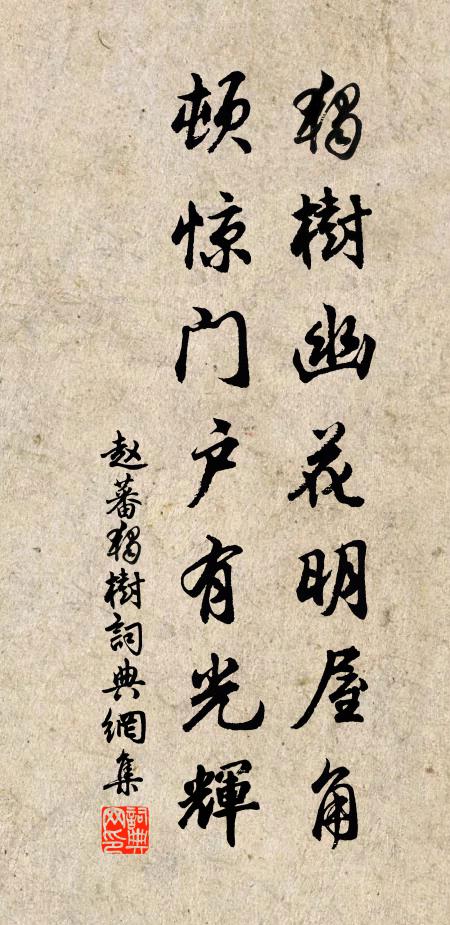 獨樹幽花明屋角
顿惊门户有光輝
赵蕃獨樹詞典網集
詞典网印